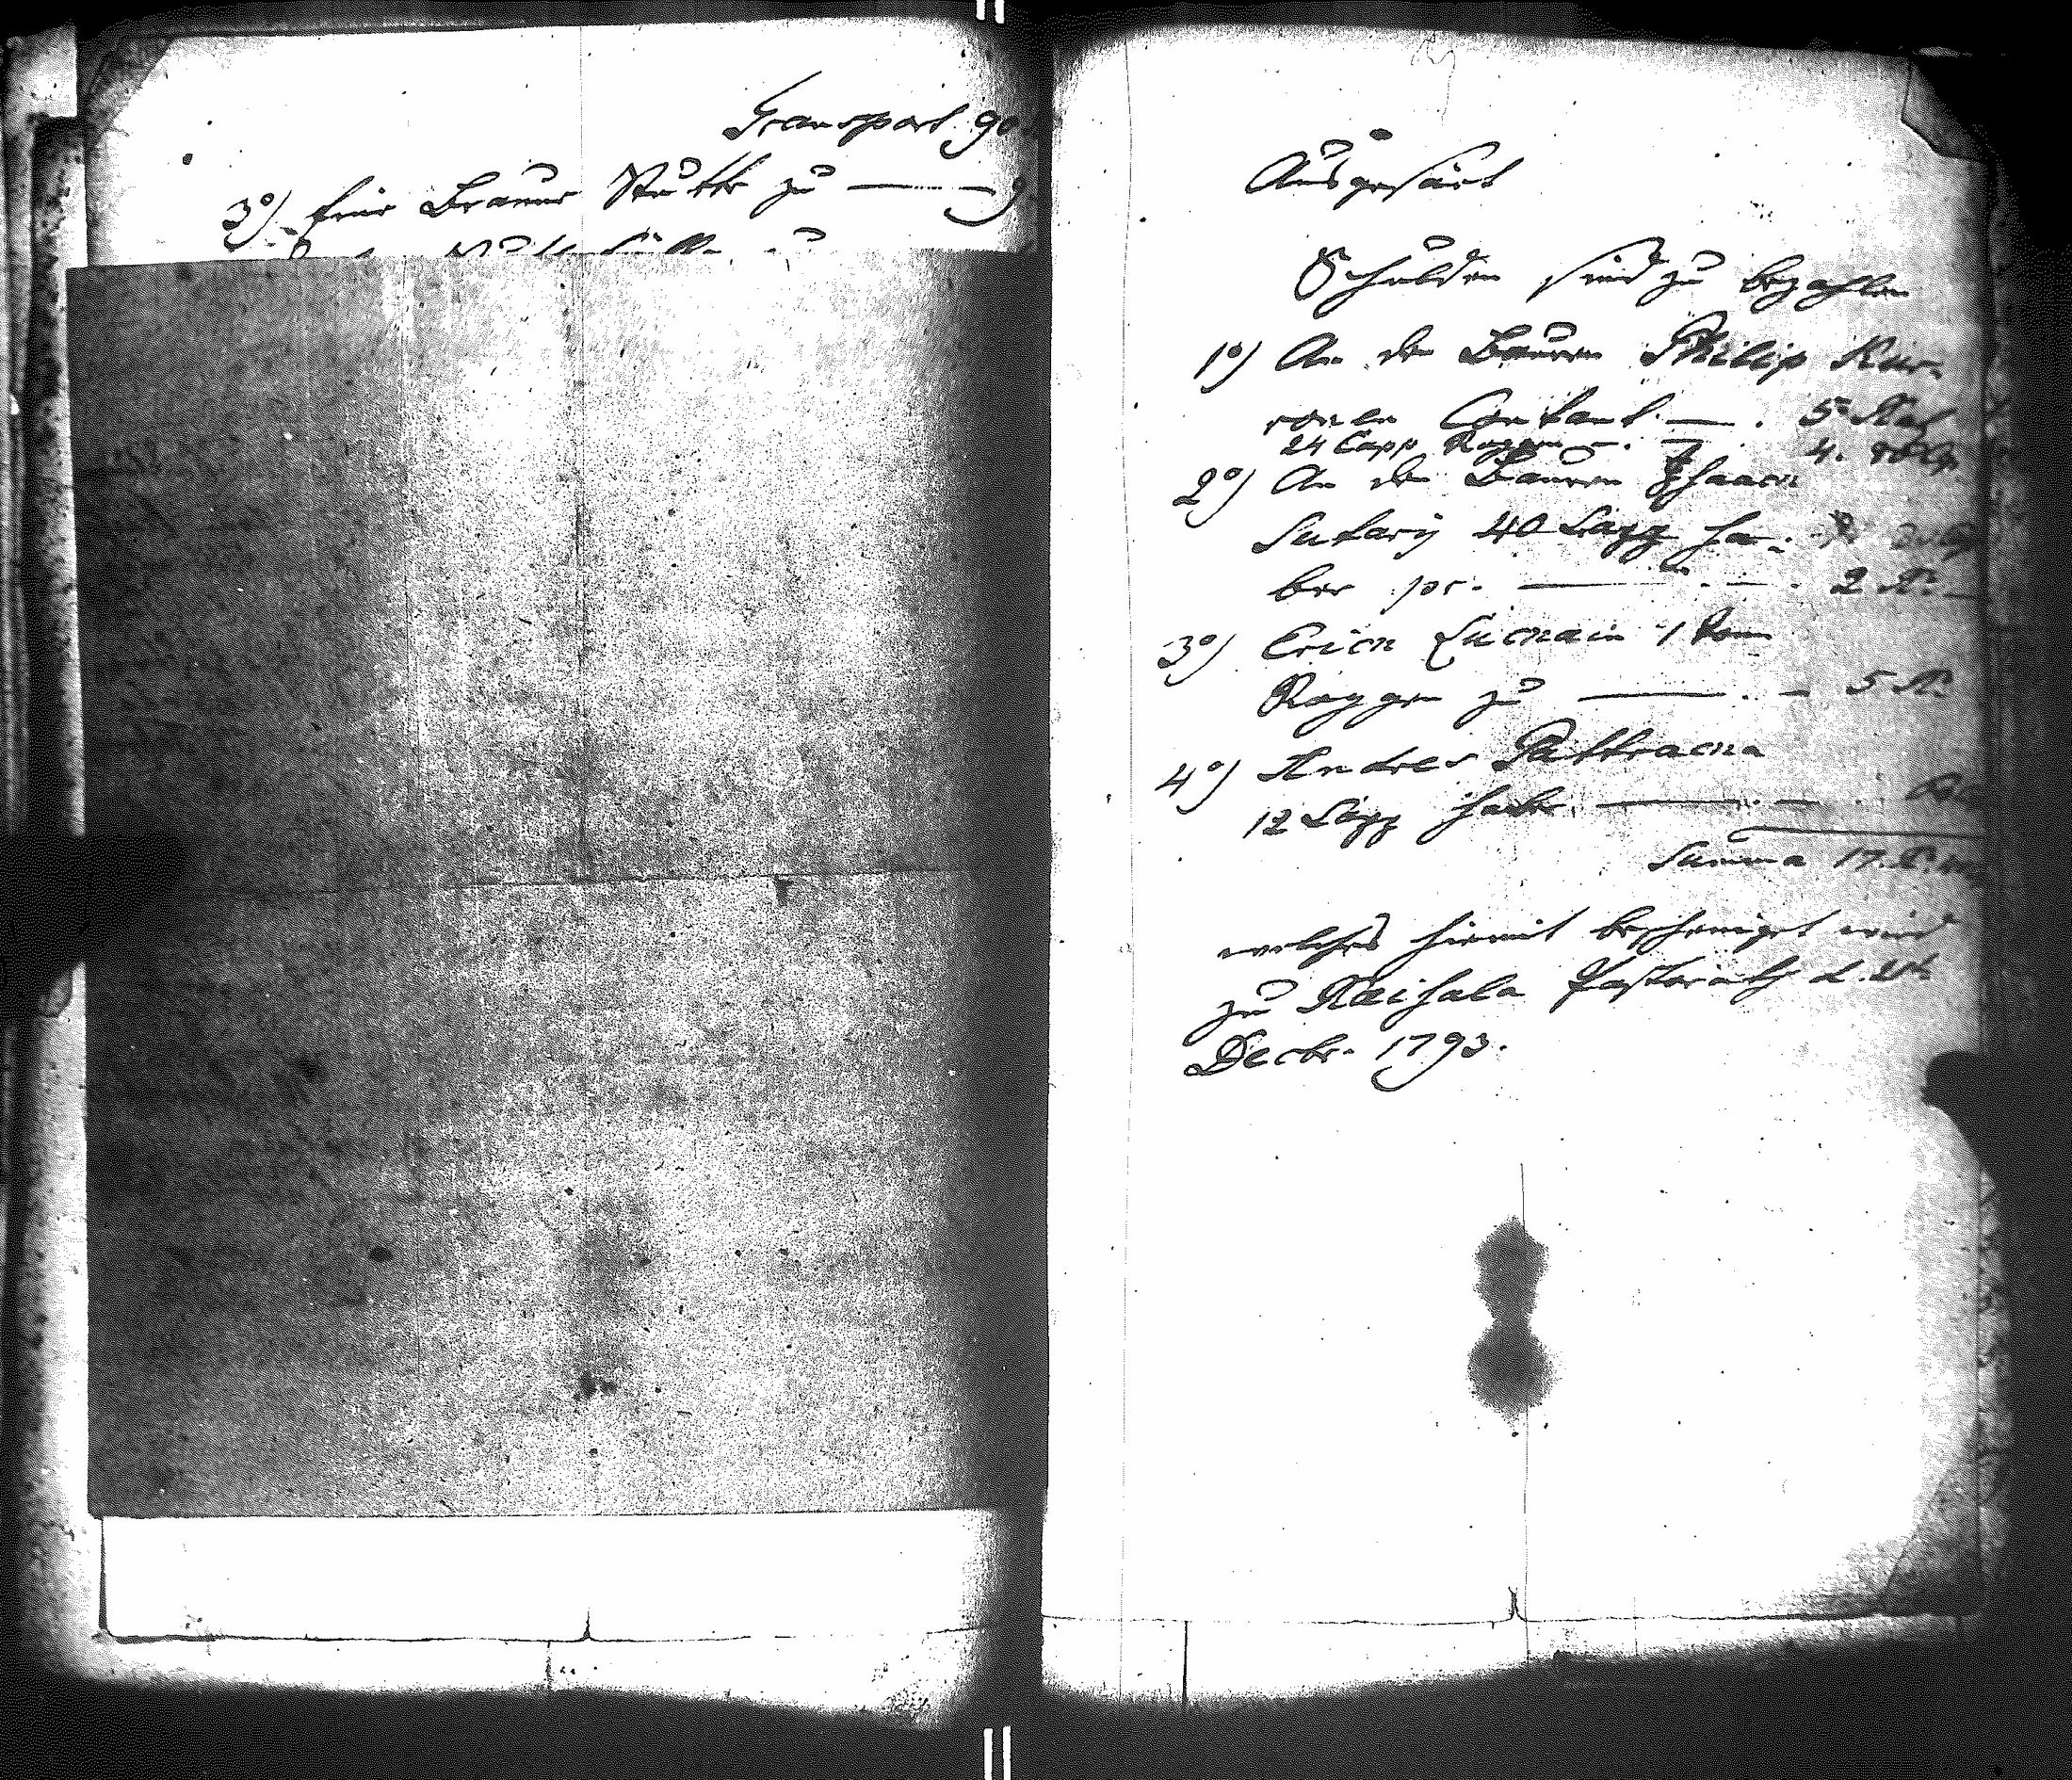 Transport 90
3º) Eine Braune Stutte zu —
Ausgesäet
Schulden sind zu bezahlen
1º) An den Bauren Philip Kur-
ronen Contant — . 5 Rub
24 Capp Roggen — . 4.
2º) An den Bauren Isaacn
Sutarij 40 Capp ha-
ber pr. — 2 R.
3º) Ericn Lucnain 1 tonn
Roggen zu — 5 R.
4º) Andres Pattraena
12 Capp haber —
Summa 17. R.
welches hiemit bescheiniget wird
zu Räisala Pastorath d. 21t
Decbr. 1793.